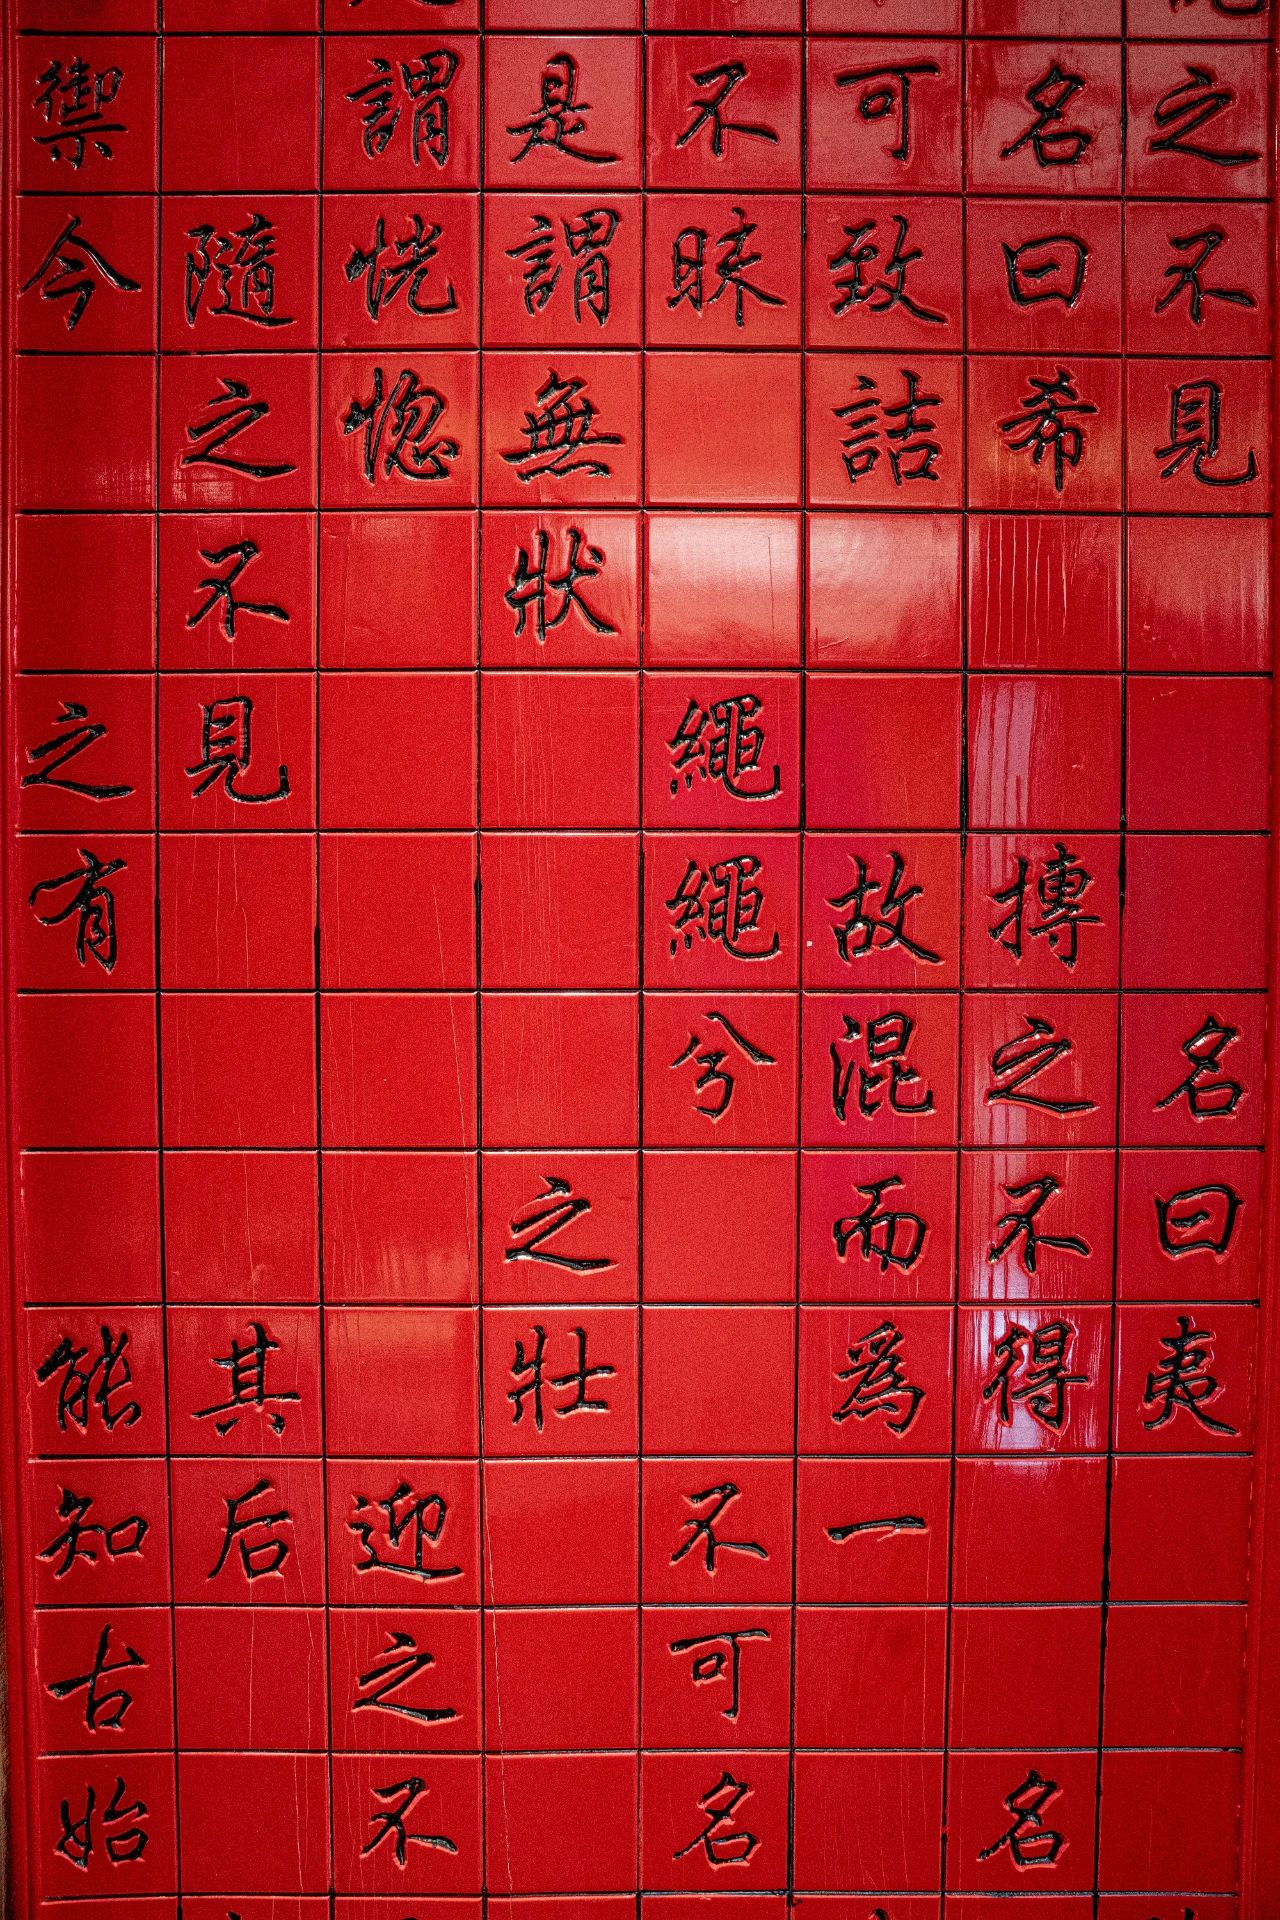 之不見 名曰夷
名曰希 搏之不得 名
可致詰 故混而爲一
不昧 繩繩兮 不可名
是謂無狀 之壯
謂恍惚 迎之不
隨之不見 其后
禦今 之有 能知古始